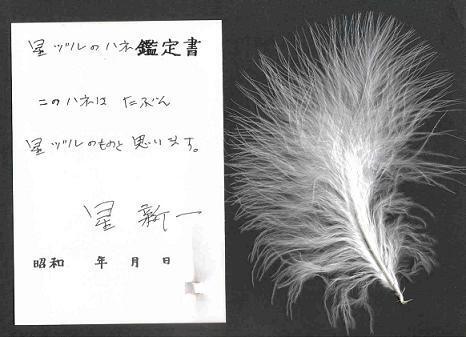 星ヅルのハネ鑑定書
このハネは たぶん
星ヅルのものと思います。
星 新一
昭和 年 月 日